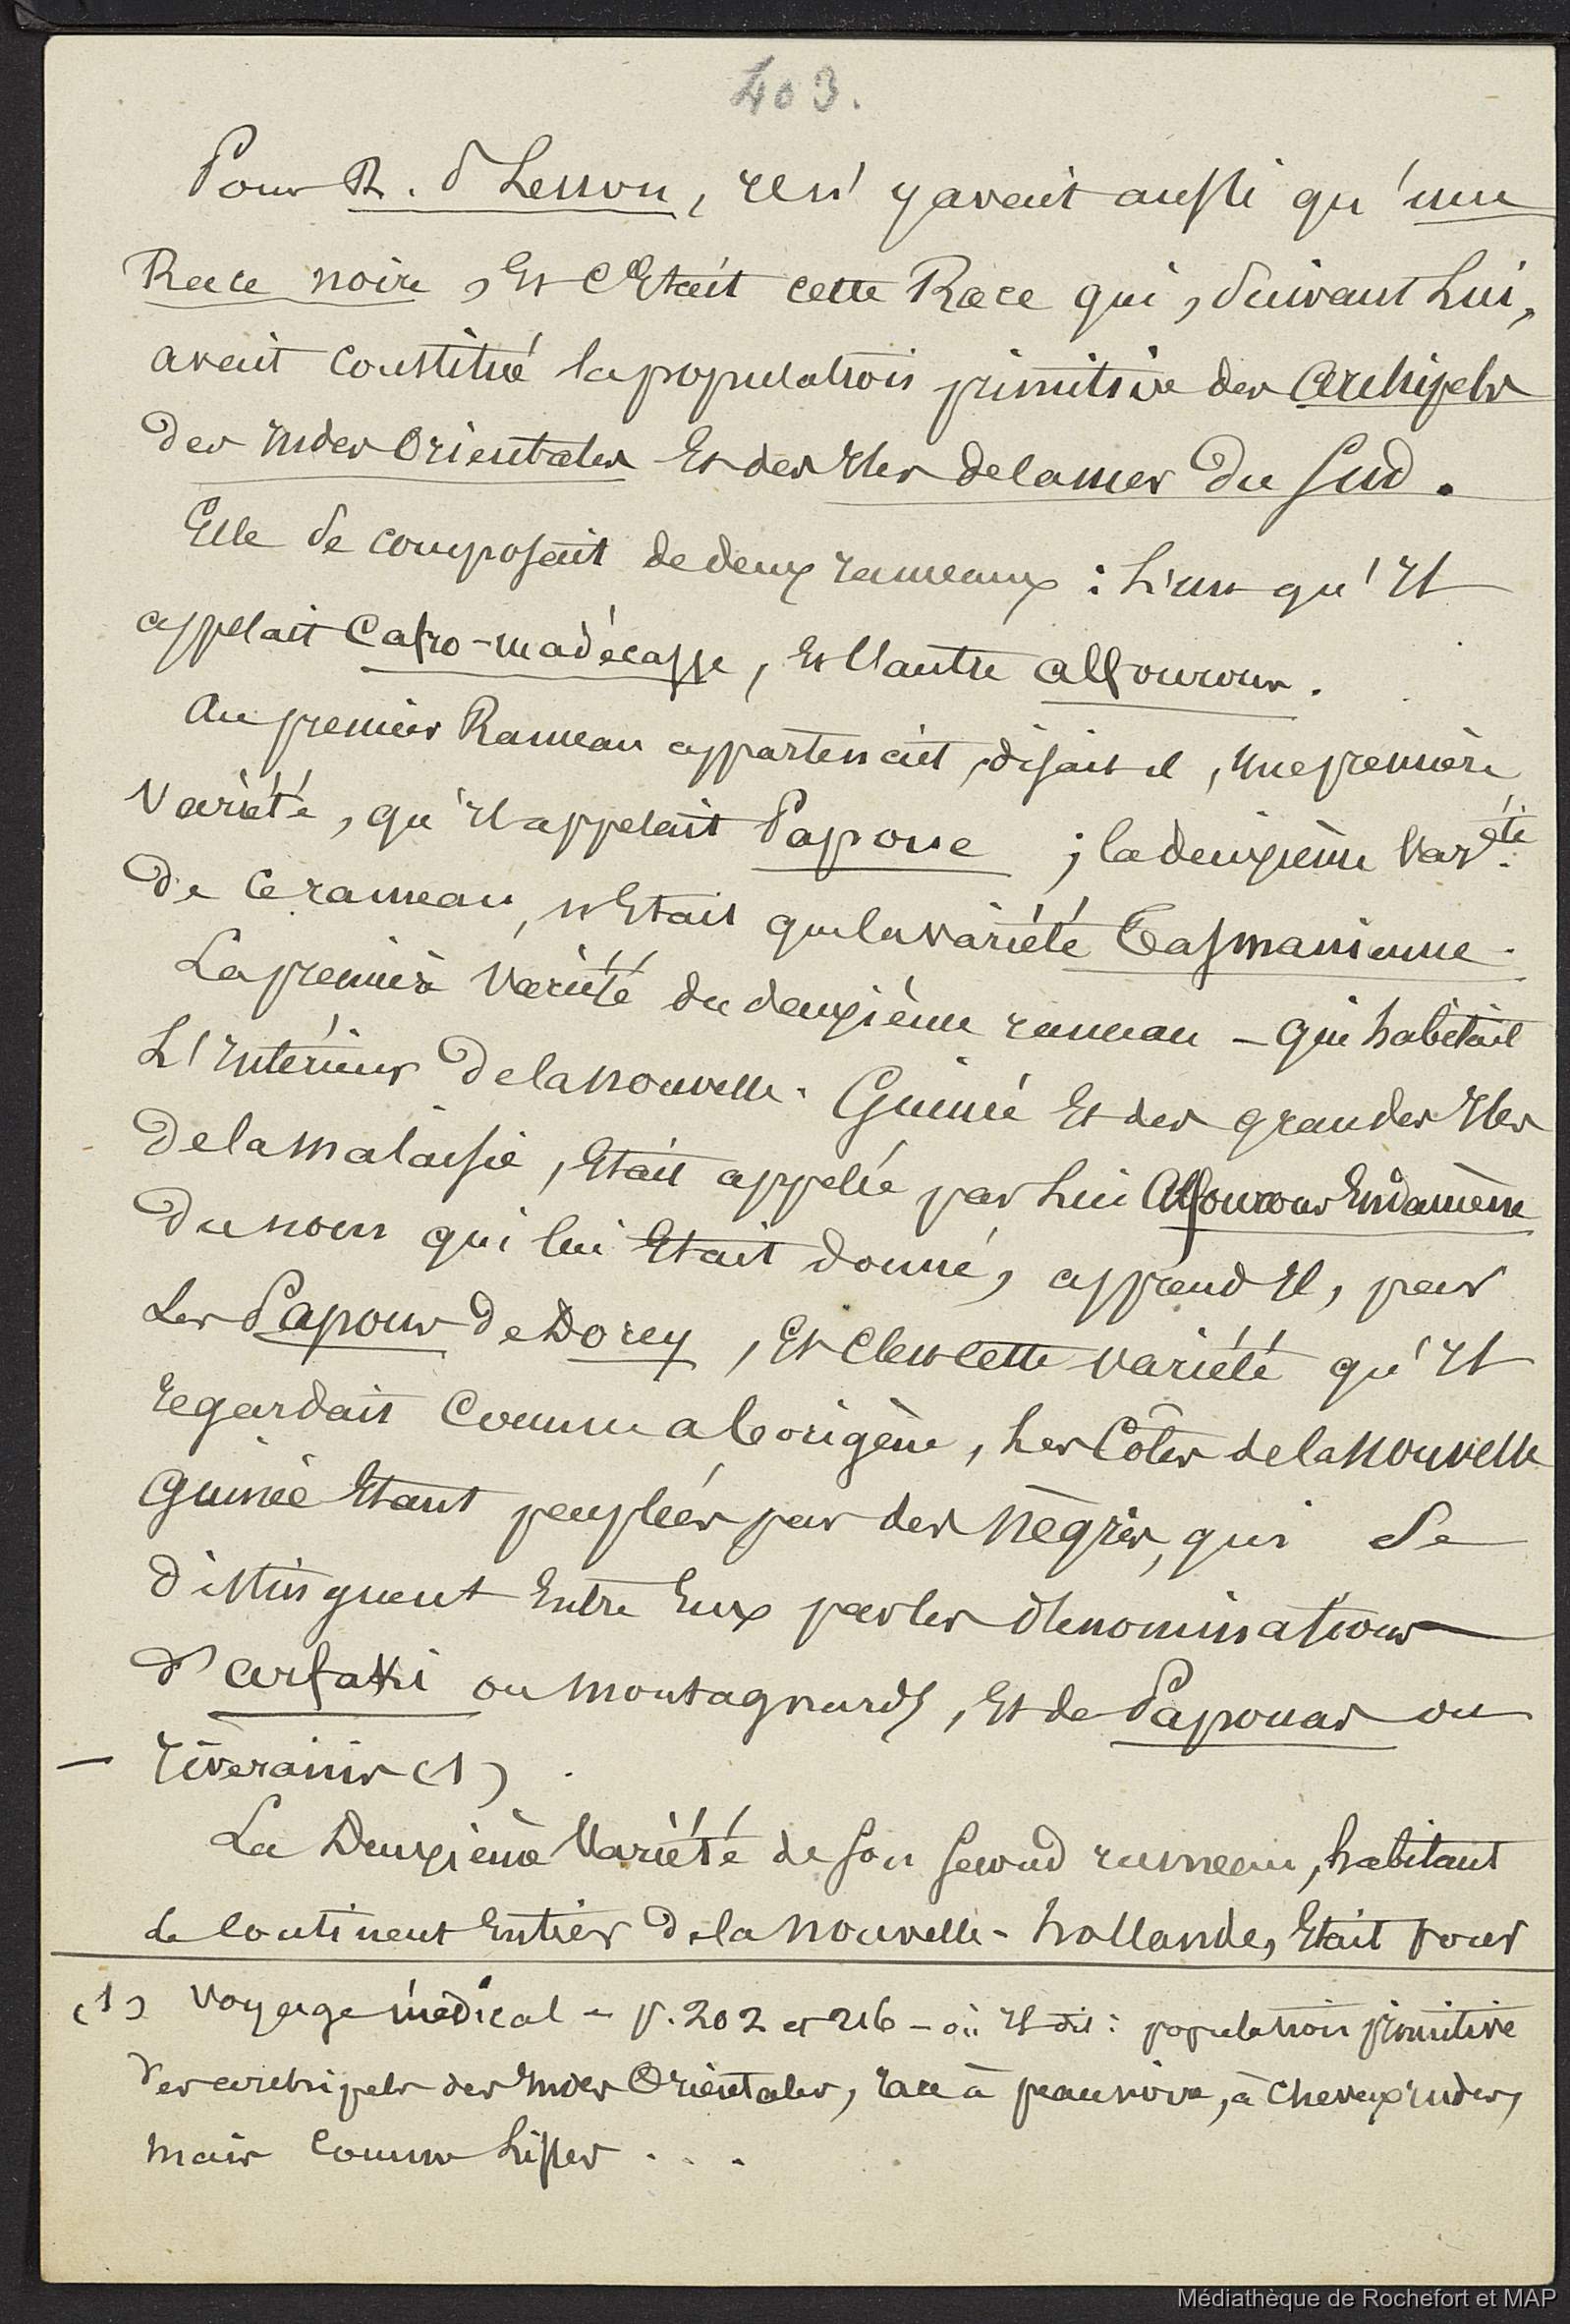 403.
Pour R. P Lesson, il n'y avait aussi qu'une
Race noire, Et c'Etait cette Race qui, suivant Lui,
avait constitué la population primitive des archipels
des indes orientales Et des Iles de la mer du Sud.
Elle se composait de deux rameaux : L'un qu'Il
appelait Cafro-madécasse, Et l'autre alfourous.
Au premier Rameau appartenait, disait il, une première
Variété, qu'Il appelait Papoue ; la deuxième Varété.
De ce rameau, n'Etait que la variété Tasmanienne.
La première Variété du deuxième rameau - qui habitait
L'Intérieur De la Nouvelle-Guinée Et des grandes Iles
De la malaisie, Etait appelée par Lui Alfourous Endamène
Du nom qui lui Etait donné, apprend Il, par
Les Papous De Dorey, Et c'Est cette variété qu'Il
regardait comme aborigène, Les Côtes de la Nouvelle
Guinée Etant peuplées par des Nègres, qui Se
distinguent Entre Eux par les dénominations
d'arfaki ou montagnards, Et de Papouas ou
- riverains (1).
La Deuxième Variété de son second rameau, habitant
le continent Entier de la Nouvelle-hollande, Etait pour
(1) Voyage médical - p. 202 et 216 - où Il dit : population primitive
des archipels des Indes Orientales, race à peau noire, à cheveux rudes,
mais comme lisses . . .
Médiathèque de Rochefort et MAP